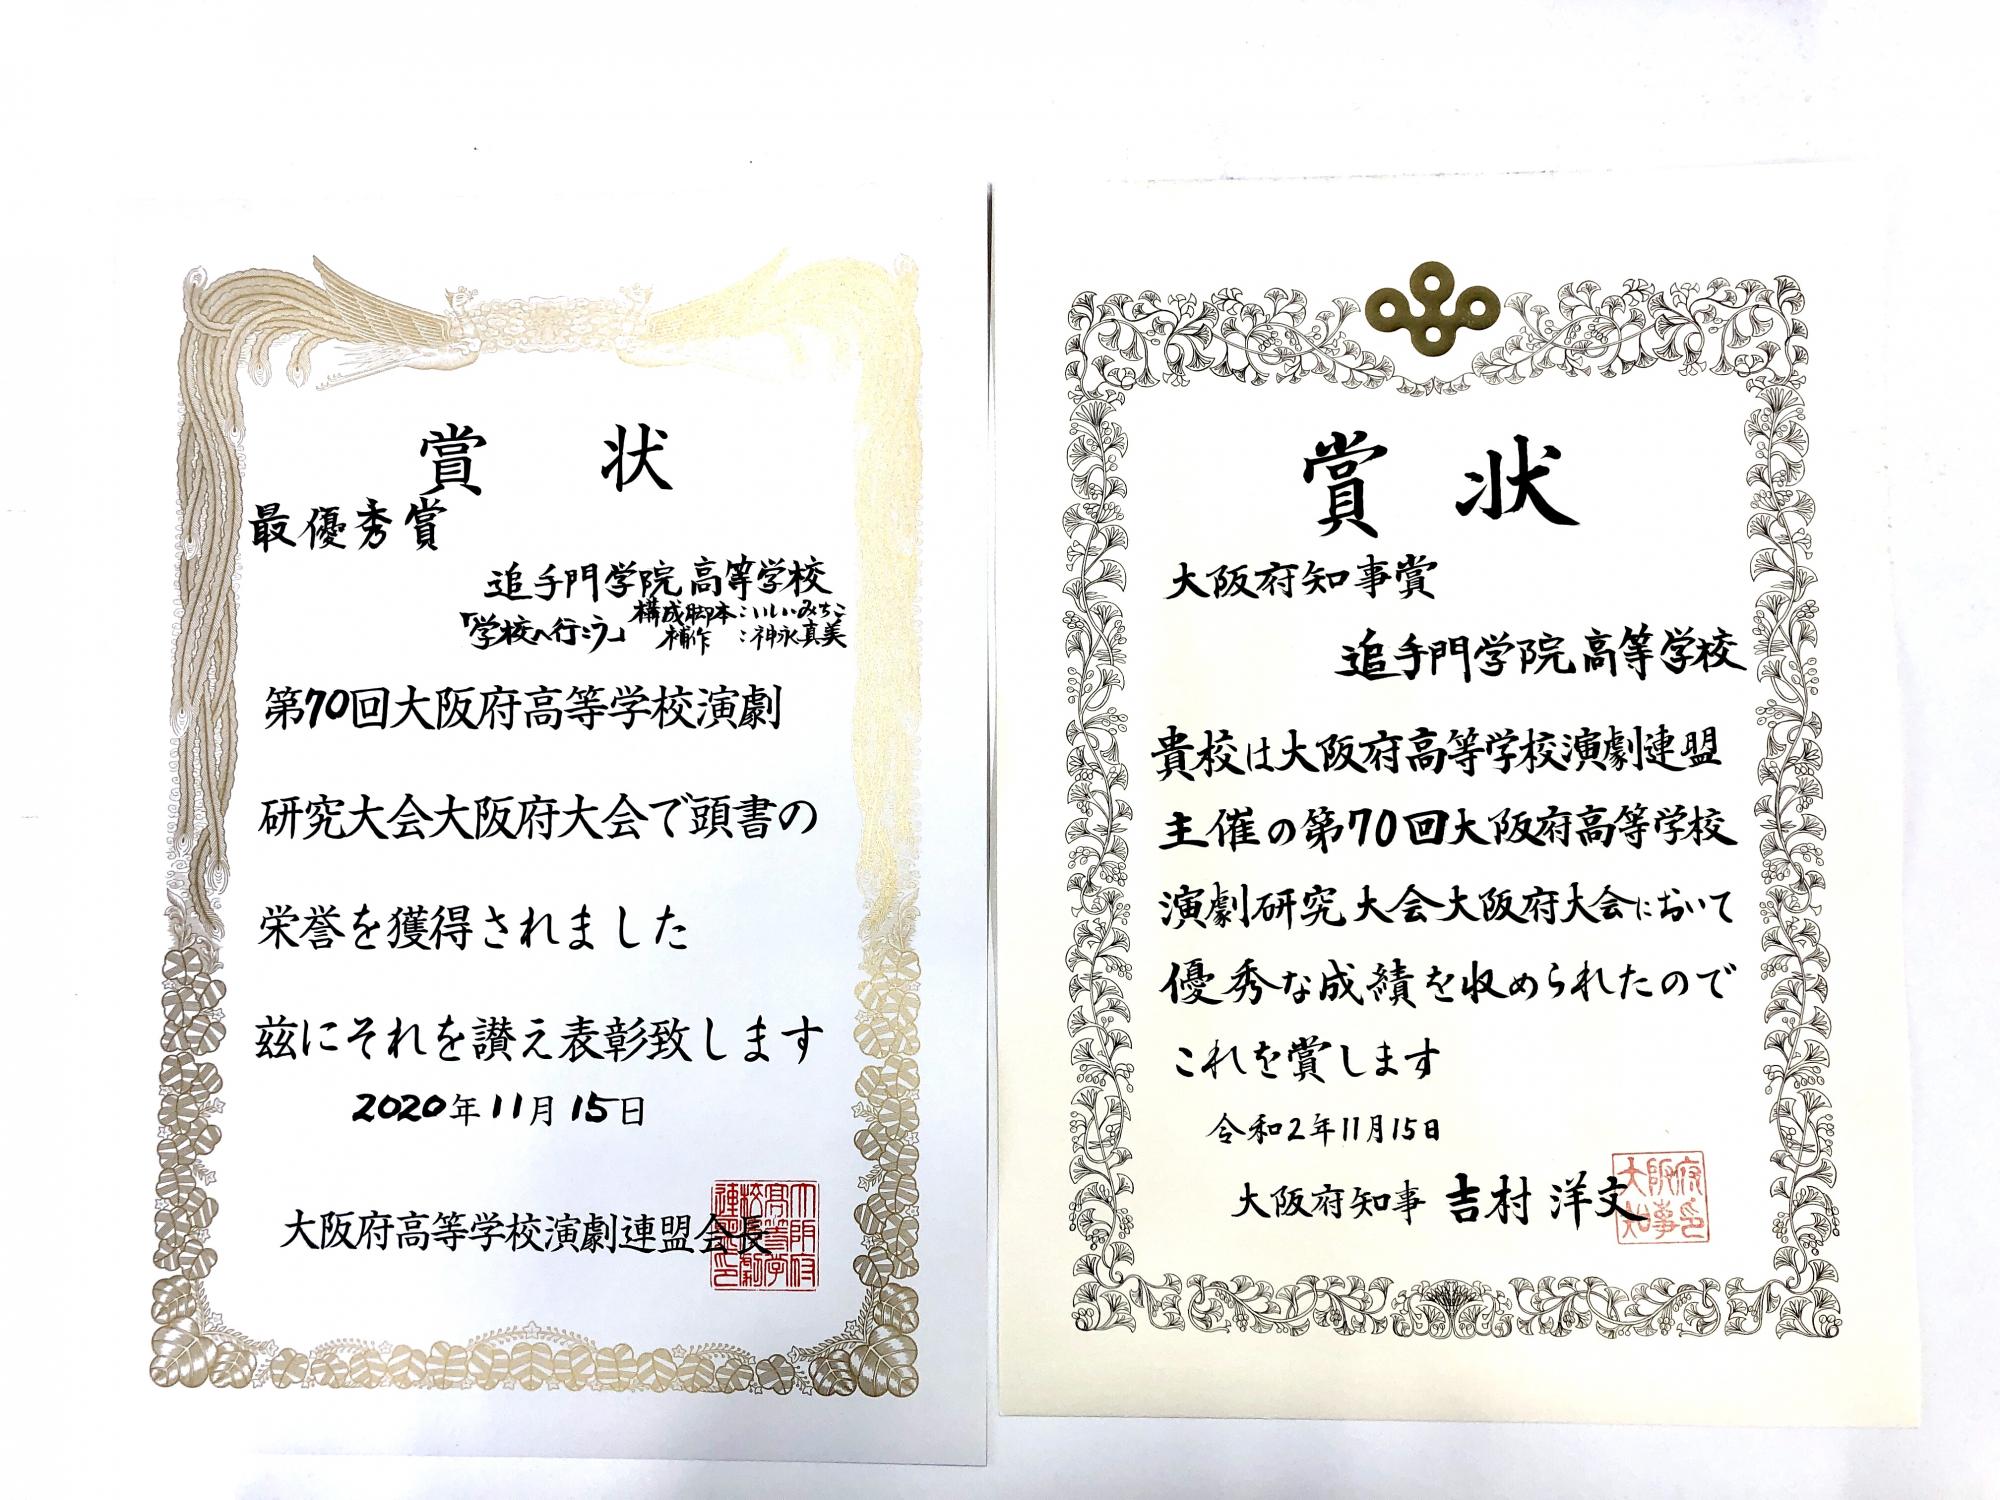 賞状
最優秀賞
追手門学院高等学校
「学校へ行こう」
構成脚本：いしいみちこ
補作　：神永真美
第70回大阪府高等学校演劇
研究大会大阪府大会で頭書の
栄誉を獲得されました
茲にそれを讃え表彰致します
2020年11月15日
大阪府高等学校演劇連盟会長
賞状
大阪府知事賞
追手門学院高等学校
貴校は大阪府高等学校演劇連盟
主催の第70回大阪府高等学校
演劇研究大会大阪府大会において
優秀な成績を収められたので
これを賞します
令和2年11月15日
大阪府知事 吉村洋文
大阪府
知事印